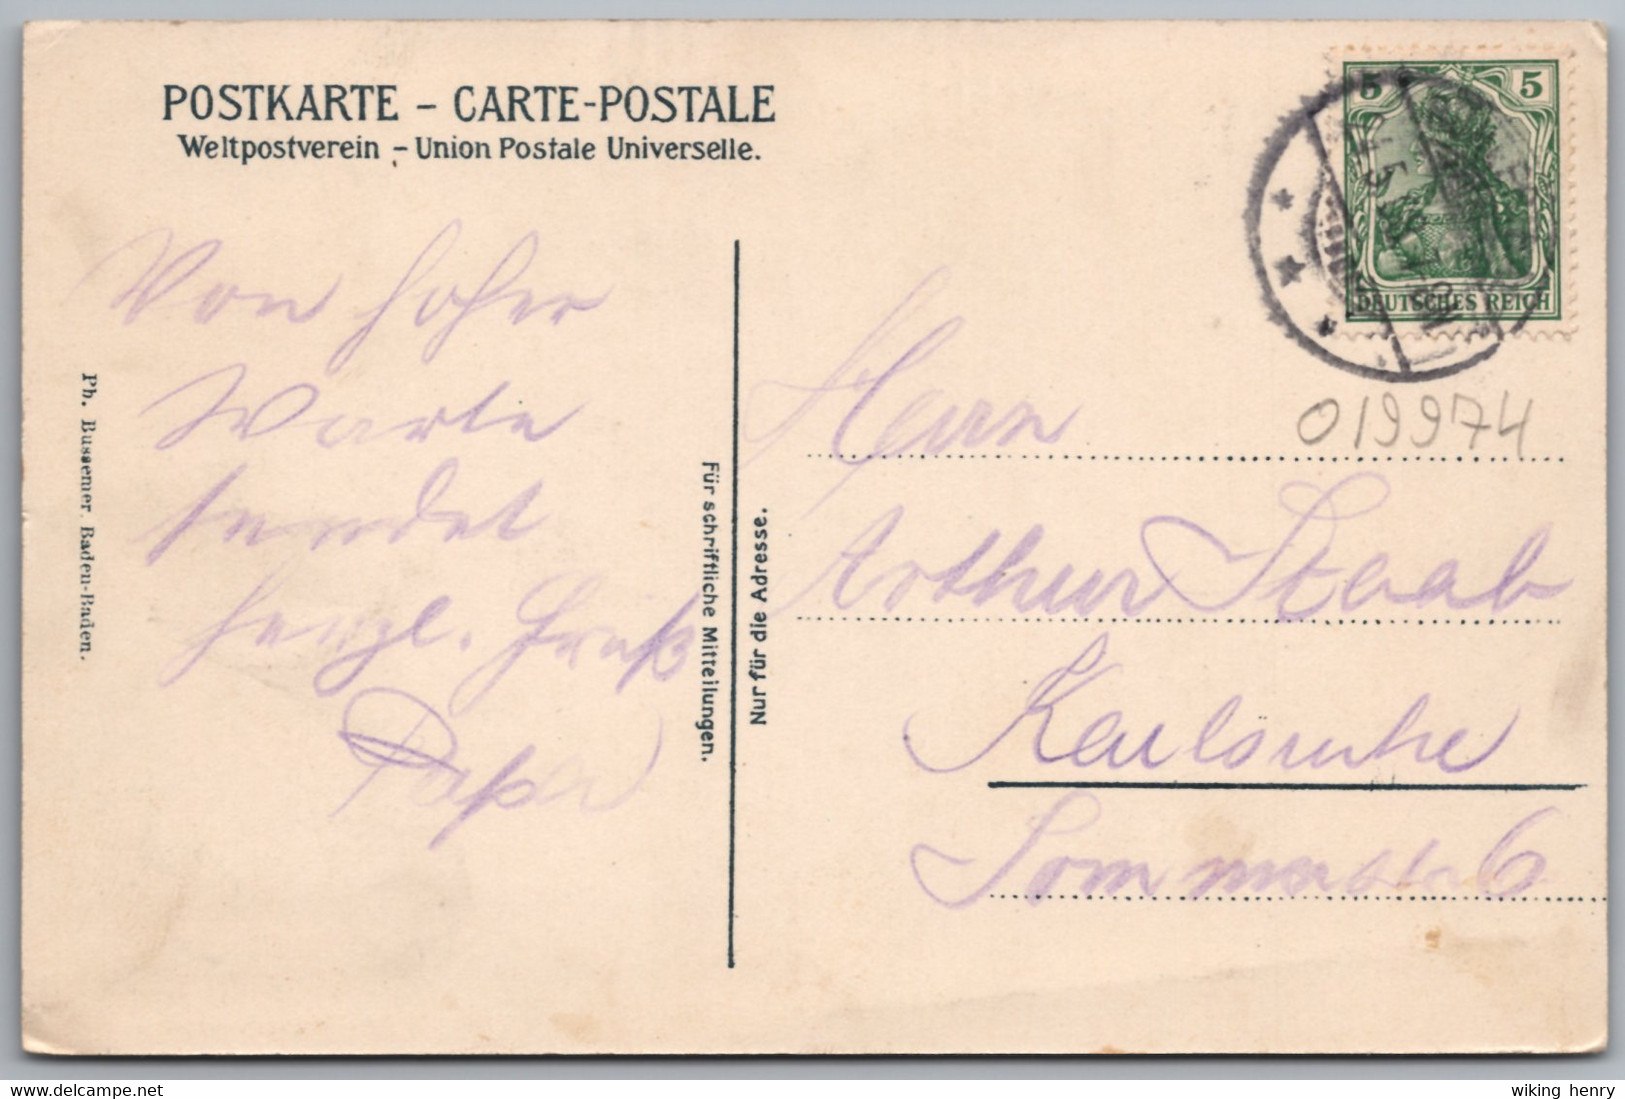 POSTKARTE – CARTE-POSTALE
Weltpostverein – Union Postale Universelle.
5 5
DEUTSCHES REICH
019974
Von hoher
Warte
sendet
herzl. Gruß
Papa
Ph. Bussemer, Baden-Baden.
Für schriftliche Mitteilungen.
Nur für die Adresse.
Herrn
Arthur Staab
Karlsruhe
6
delcampe.net
wiking_henry